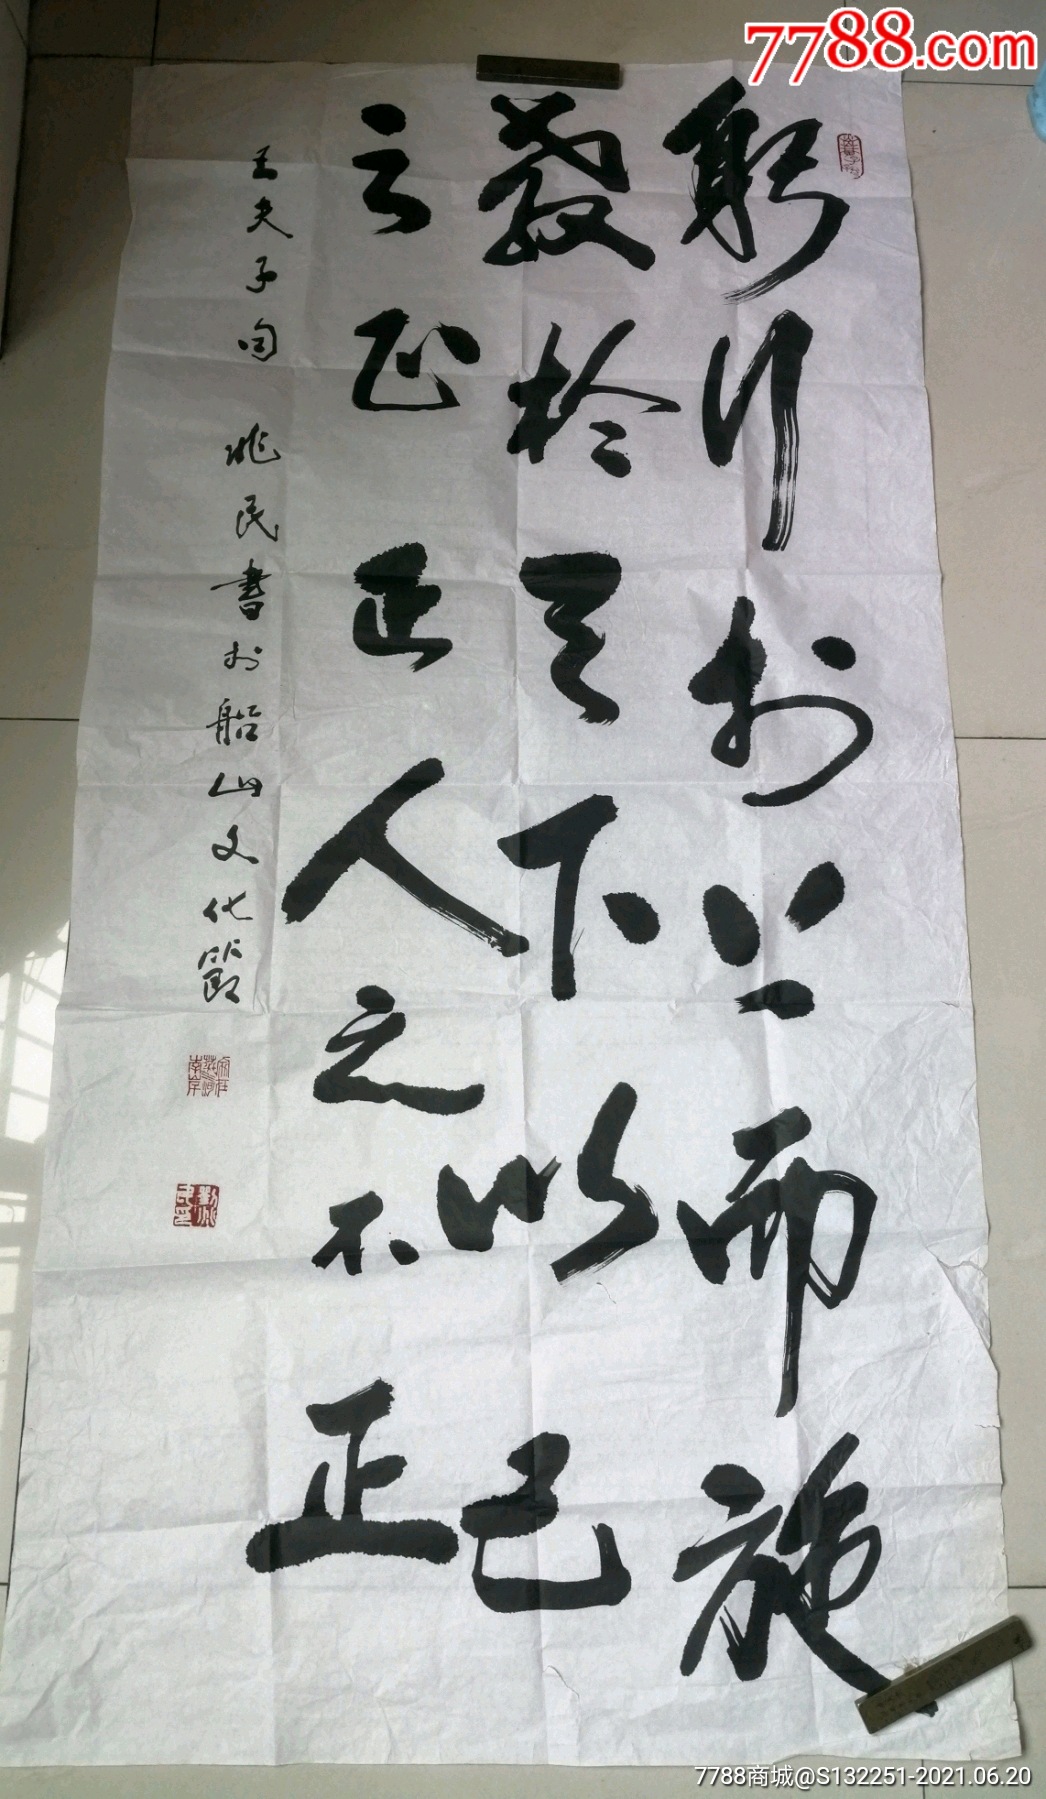 7788.com
躬行於上而施
教於天下以己
之正正人之不正
王夫子句 兆民書於船山文化節
7788商城@S132251-2021.06.20